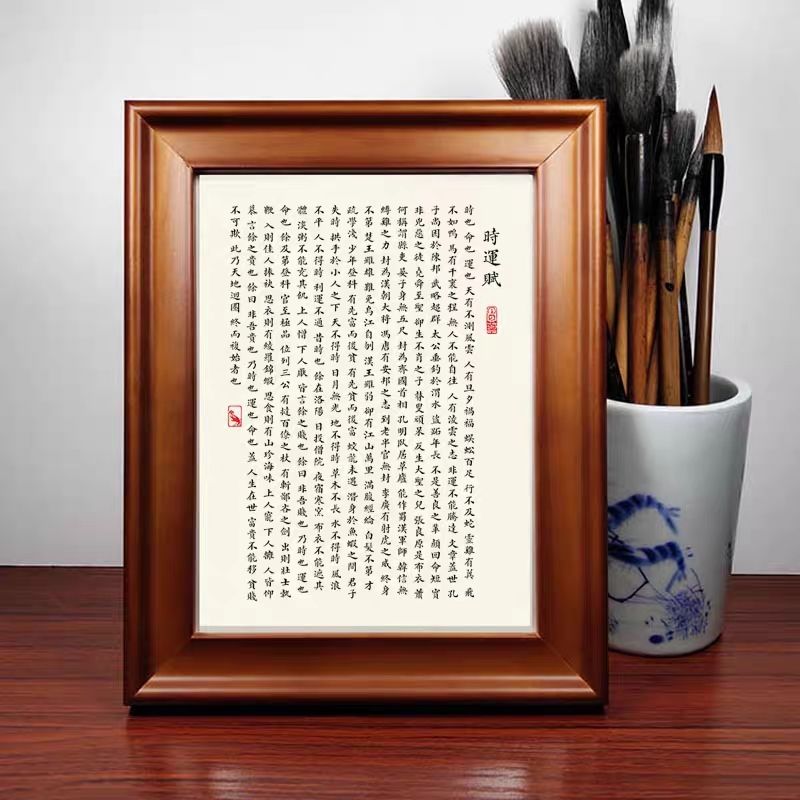 時運賦
時也 命也 運也 天有不測風雲 人有旦夕禍福 蜈蚣百足 行不及蛇 靈雞有翼 飛
不如鴨 馬有千裏之程 無人不能自往 人有淩雲之志 非運不能騰達 文章蓋世 孔
子尚困於陳邦 武略超群 太公垂釣於渭水 盜跖年長 不是善良之輩 顏回命短 實
非兇惡之徒 堯舜至聖 卻生不肖之子 瞽叟頑呆 反生大聖之兒 張良原是布衣 蕭
何稱謂縣吏 晏子身無五尺 封為齊國首相 孔明臥居草廬 能作蜀漢軍師 韓信無
縛雞之力 封為漢朝大將 馮唐有安邦之志 到老半官無封 李廣有射虎之威 終身
不第 楚王雖雄 難免烏江自刎 漢王雖弱 卻有江山萬里 滿腹經綸 白髮不第 才
疏學淺 少年登科 有先富而後貧 有先貧而後富 蛟龍未遇 潛身於魚蝦之間 君子
失時 拱手於小人之下 天不得時 日月無光 地不得時 草木不長 水不得時 風浪
不平 人不得時 利運不通 昔時也 餘在洛陽 日投僧院 夜宿寒窯 布衣不能遮其
體 淡粥不能充其飢 上人憎 下人厭 皆言餘之賤也 餘曰 非吾賤也 乃時也 運也
命也 餘及第登科 官至極品 位列三公 有撻百僚之杖 有斬鄙吝之劍 出則壯士執
鞭 入則佳人捧袂 思衣則有綾羅錦緞 思食則有山珍海味 上人寵 下人擁 人皆仰
慕 言餘之貴也 餘曰 非吾貴也 乃時也 運也 命也 蓋人生在世 富貴不能移 貧賤
不可欺 此乃天地迴圈 終而復始者也